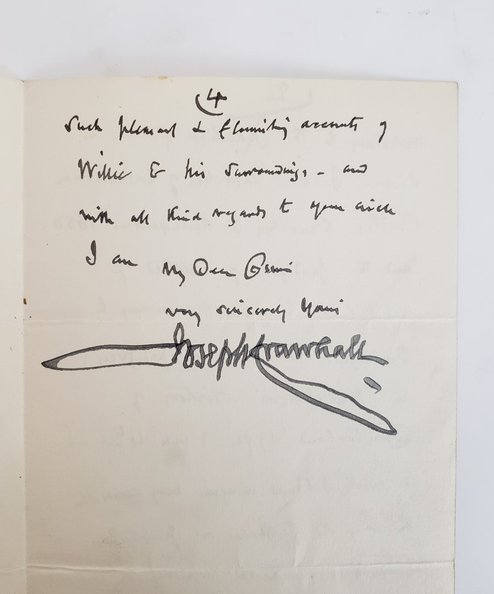 4
such pleasant & flourishing accounts of
Willie & his surroundings – and
with all kind regards to your circle
I am My Dear
very sincerely Yours
Joseph Crawhall